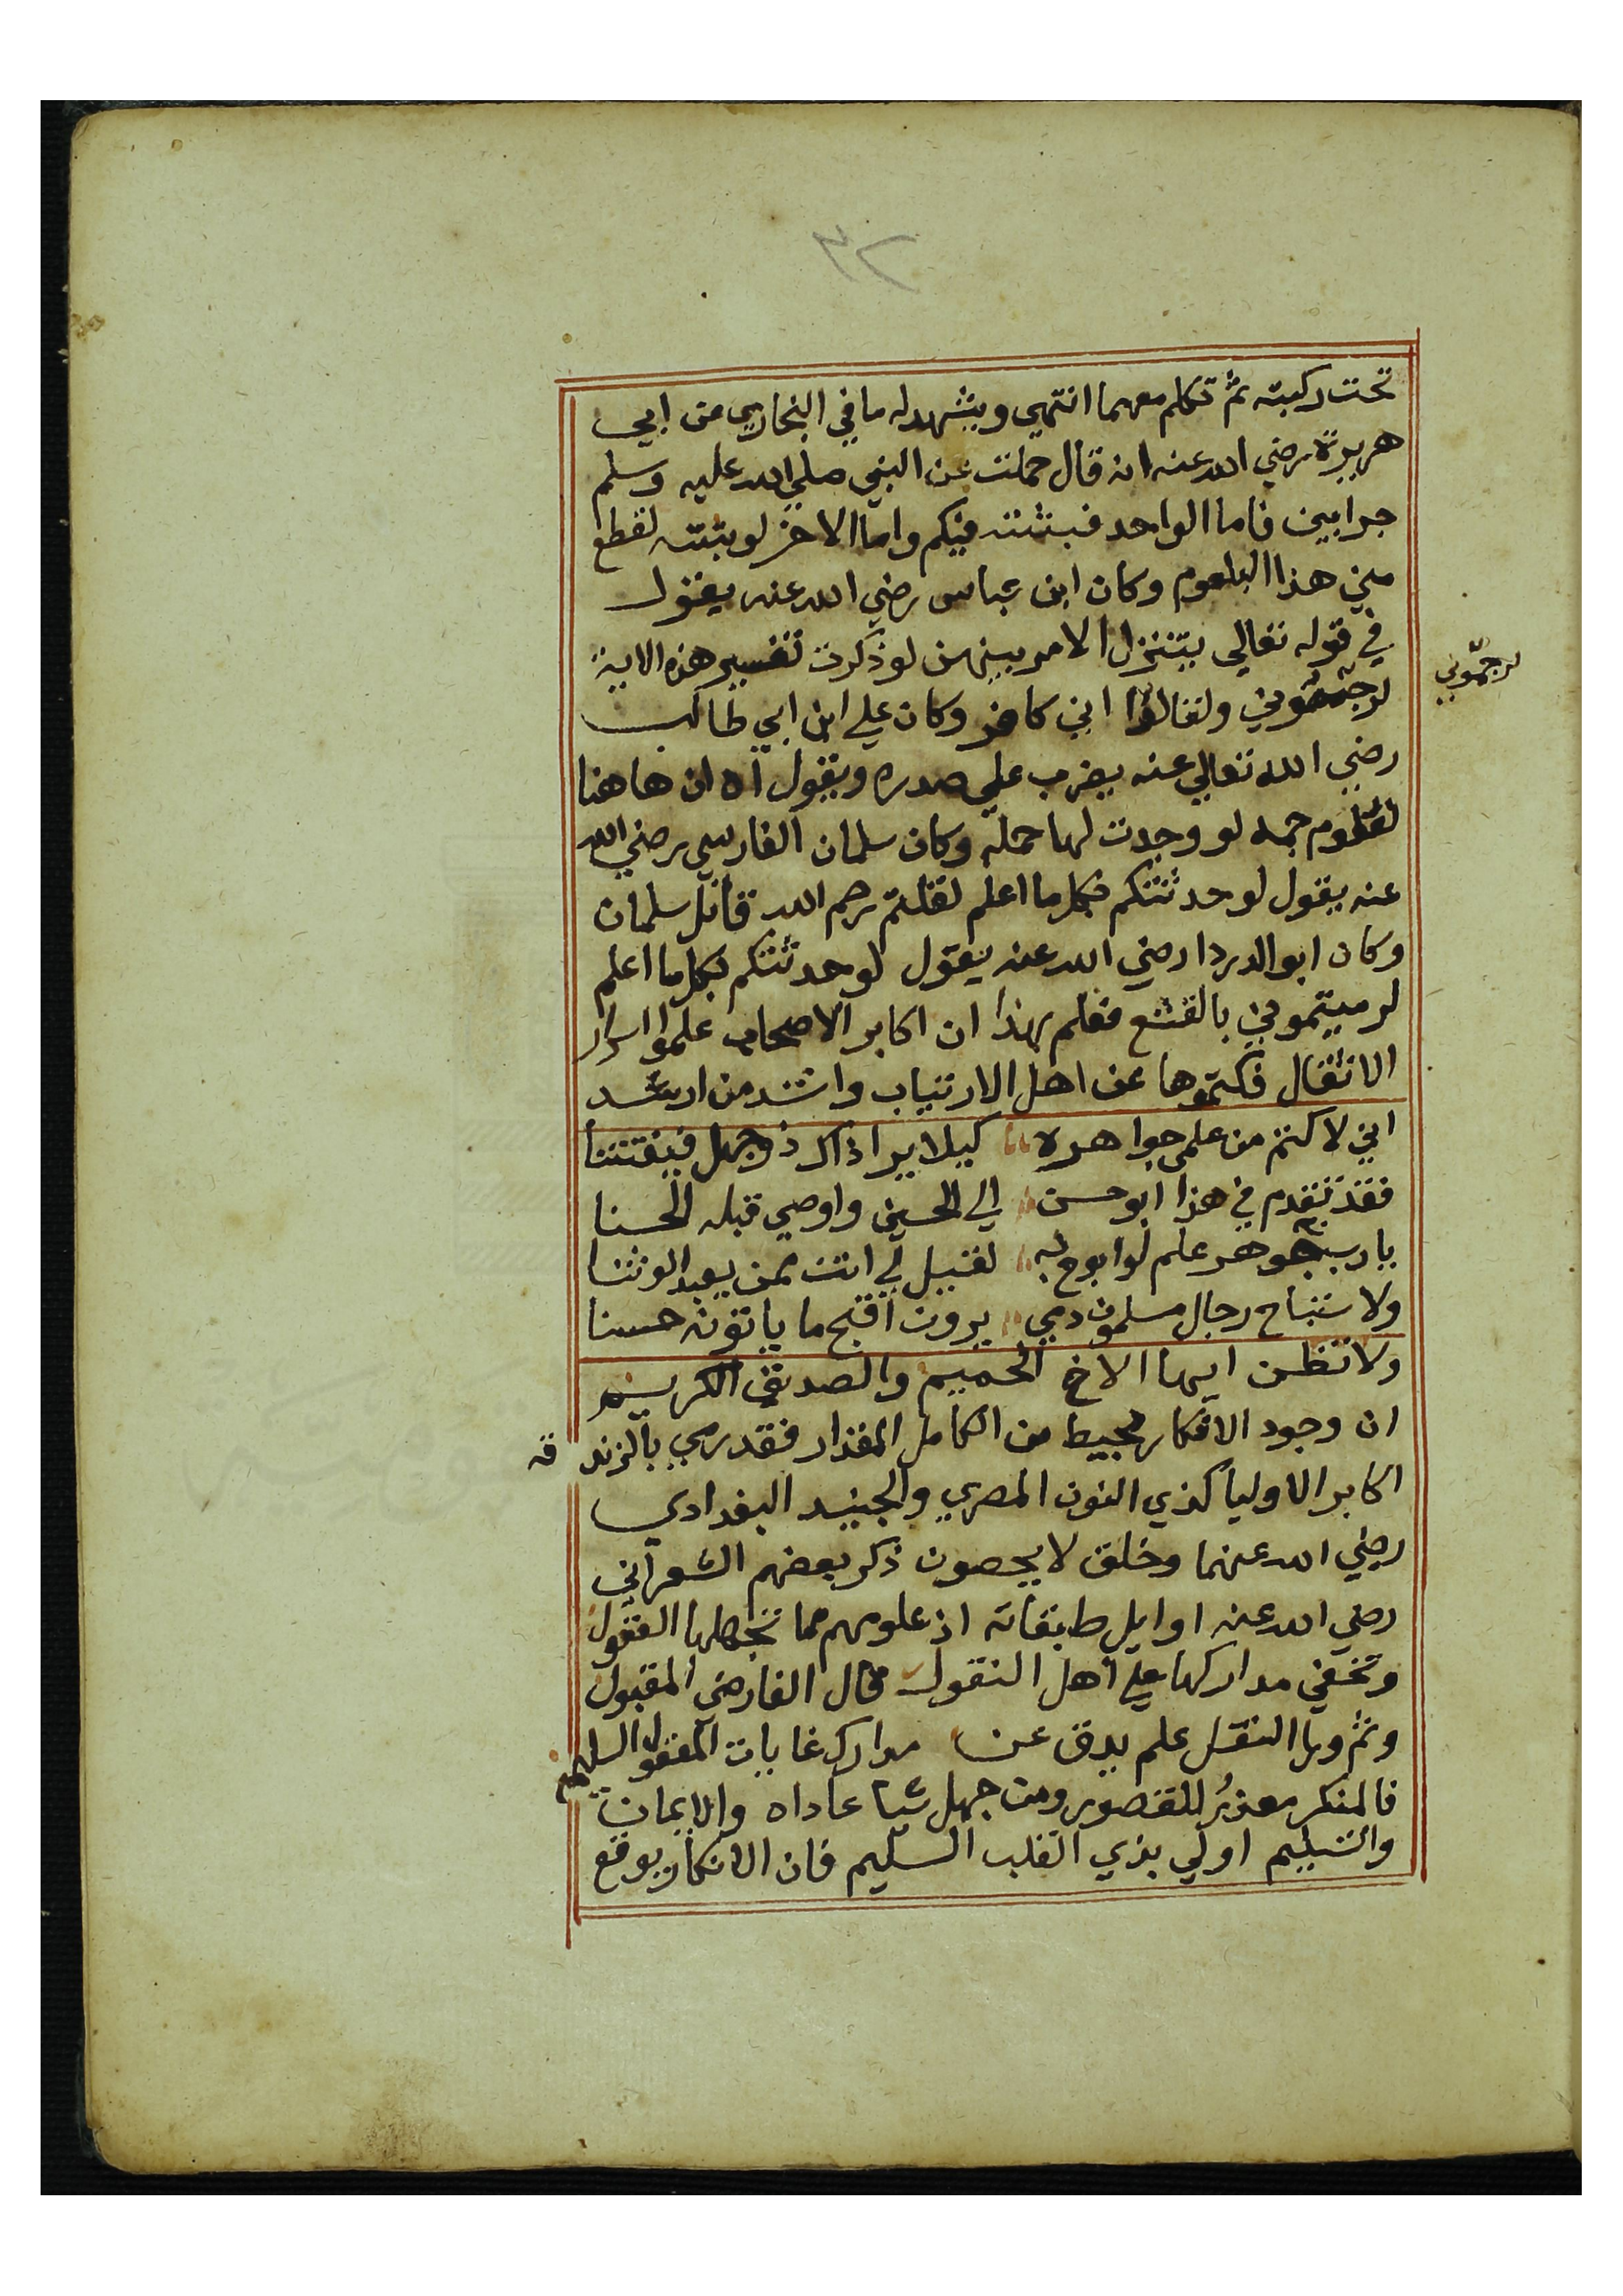 تحت ركبته ثم تكلم معهما انتهي ويشهد له ما في البخاري عن ابي
هريرة رضي الله عنه انه قال حملت عن النبي صلي الله عليه وسلم
جرابين فاما الواحد فبثثته فيكم واما الاخر لو بثثته لقطع
مني هذا البلعوم وكان ابن عباس رضي الله عنه يقول
في قوله تعالي يتنزل الامر بينهن لو ذكرت تفسير هذه الاية
لرجمتموني ولقالوا اني كافر وكان علي ابن ابي طالب
لرجمتموني
رضي الله تعالي عنه يضرب علي صدره ويقول اه ان هاهنا
لعلوم جمه لو وجدت لها حملة وكان سلمان الفارسي رضي الله
عنه يقول لو حدثتكم بكل ما اعلم لقلتم رحم الله قاتل سلمان
وكان ابو الدردا رضي الله عنه يقول لو حدثتكم بكل ما اعلم
لرميتموني بالقشع فعلم بهذا ان اكابر الاصحاب علموا اسرار
الانفال فكتموها عن اهل الارتياب وانشد من ارشد
اني لاكتم من علمي جواهره كيلا يرا ذاك ذو جهل فيفتتنا
فقد تقدم في هذا ابو حسن الي الحسين واوصي قبله الحسنا
يا رب جوهر علم لو ابوح به لقيل لي انت ممن يعبد الوثنا
ولاستباح رجال مسلمون دمي يرون اقبح ما ياتونه حسنا
ولا تظن ايها الاخ الحميم والصديق الكريم
ان وجود الافكار محيط من الكامل المقدار فقد رمي بالزندقه
اكابر الاوليا كذي النون المصري والجنيد البغدادي
رضي الله عنهما وخلق لا يحصون ذكر بعضهم الشعراني
رضي الله عنه اوايل طبقاته اذ علومهم مما تجهلها العقول
وتخفي مداركها علي اهل النقول قال الفارضي المقبول
وثم ورا النقل علم يدق عن مدارك غايات العقول السليمه
فالمنكر معذر للقصور ومن جهل شيا عاداه والايمان
والتسليم اولي بذي القلب السليم فان الانكار يوقع